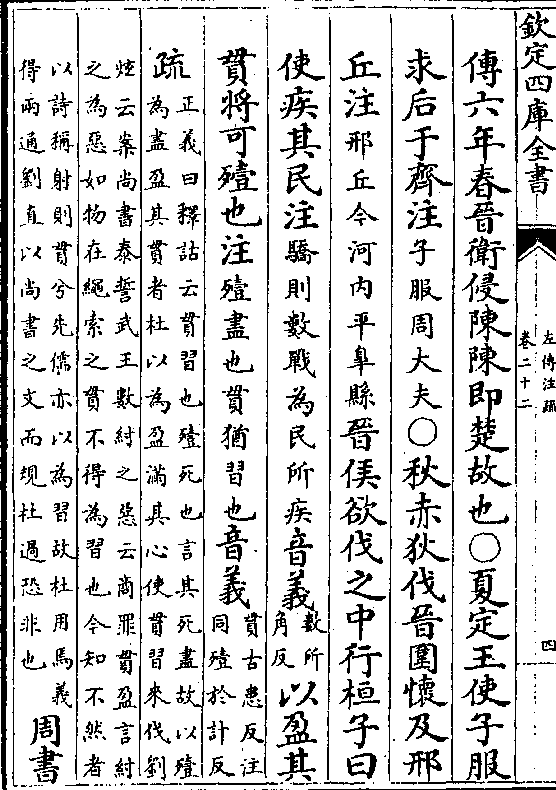 欽定四庫全書
左傳注疏
卷二十二
四
傳六年春晉衛侵陳陳即楚故也○夏定王使子服
求后于齊注子服周大夫○秋赤狄伐晉圍懷及邢
丘注邢丘今河內平臯縣晉侯欲伐之中行桓子曰
使疾其民注驕則數戰為民所疾音義數所角反以盈其
貫將可殪也注殪盡也貫猶習也音義貫古患反注同殪於計反
疏正義曰釋詁云貫習也殪死也言其死盡故以殪
為盡盈其貫者杜以為盈滿其心使貫習來伐劉
炫云案尚書泰誓武王數紂之惡云商罪貫盈言紂
之為惡如物在繩索之貫不得為習也今知不然者
以詩稱射則貫兮先儒亦以為習故杜用焉義
得兩通劉直以尚書之文而規杜過恐非也
周書